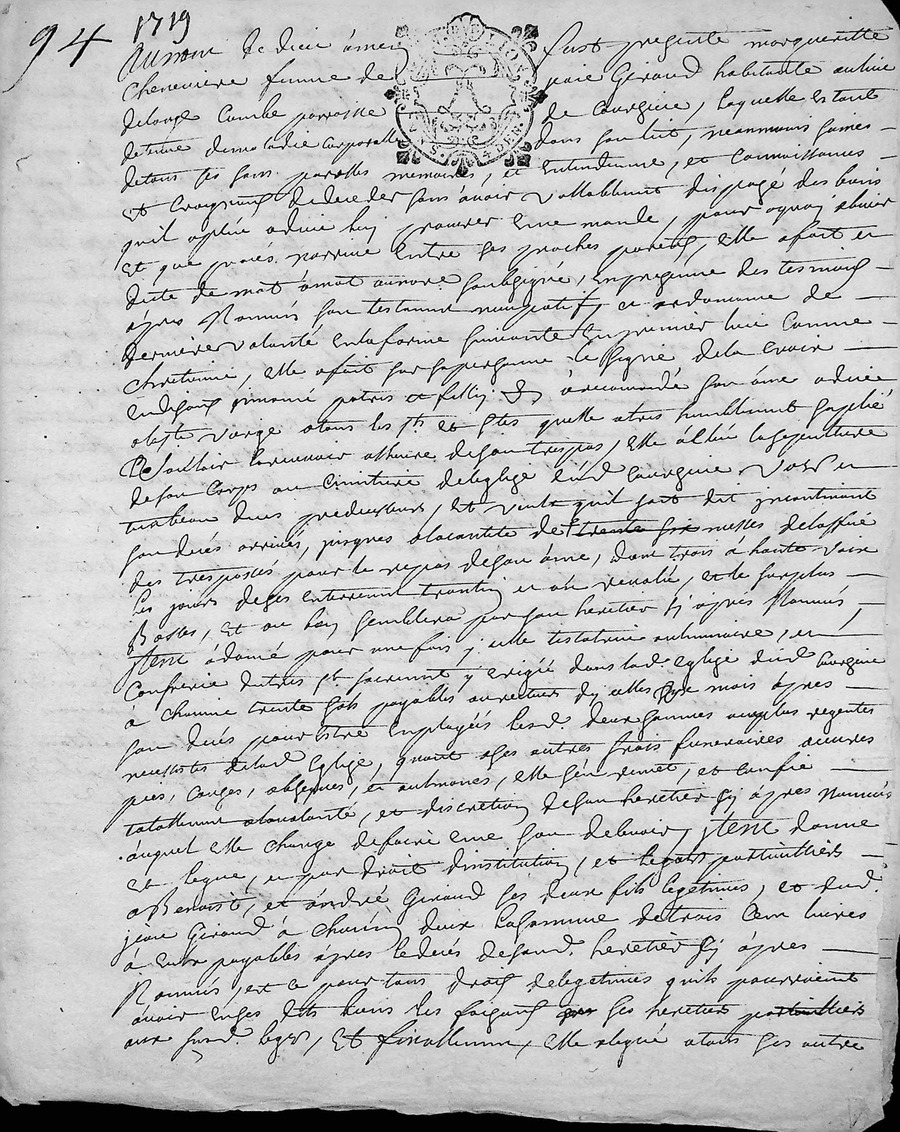 94 1719
Au nom de dieu amen fust presente margueritte
Cheneviere femme de jean Giraud habitante au lieu
de Combe parroisse de Courgine, laquelle estant
detenue de maladie corporelle dans son lit, neanmoins saine
de tous ses sens parolles memoires, et Entendement, et Connoissances
Et Craignant de deceder sans avoir vallablement disposé des biens
qu'il a pleu a dieu luy
Et que procés narrive Entre ses proches parents, elle a fait et
dicté de mot a mot au no.re soubsigné, En presence des tesmoins
apres Nommés son testament nuncupatif, et ordonnance de
derniere volonté En la forme suivante En premier lieu Comme
Chretienne, elle a fait sur sa personne le signe de la Croix
En disant in nomine patris et fillij & a recomandé son ame a dieu
a la ste vierge a tous les sts et stes quelle a tres humblement supplié
de son Corps au Cimitiere de leglise dud Courgine
tumbeau de ses predecesseurs, Et veut qu'il soit dit incontinant
son decés arrivé, jusques a la cantité de trente six messes de loffice
des trespassés pour le repos de son ame, dont trois a haute voix
les jours de ses Enterrement trantin et an revolu, et le surplus
Basses, Et ou bon semblera par son heretier sy apres Nommé,
jtem a donné pour une fois, jcelle testatrice au luminaire, et
Confrerie du tres st sacrement y erigée dans lad Eglise dud Courgine
a chacune trente sols payables aux recteurs dycelles six mois apres
son decés pour estre Employées lesd deux sommes au plus urgentes
necessités de lad Eglise, quant a ses autres frais funeraires œuvres
pies, obseques, et aulmones, elle s'en remet, et confie
totallement a la volonté, et discretion de son heretier sy apres Nommé
auquel elle charge de faire son debvoir, jtem donne
et legue, par droit d'institution, et legats particulliers
a Benoist, et andré Giraud ses deux fils legitimes, et dud.
jean Giraud a chacun deux la somme de trois Cent livres
a Eux payables apres le decés de sond. heretier sy apres
Nommé, et ce pour tous droits de legitimes quils pourroient
avoir En ses dits biens les faisant ses heretiers particulliers
aux susd legs, Et finallement, elle a legué a tous ses autre